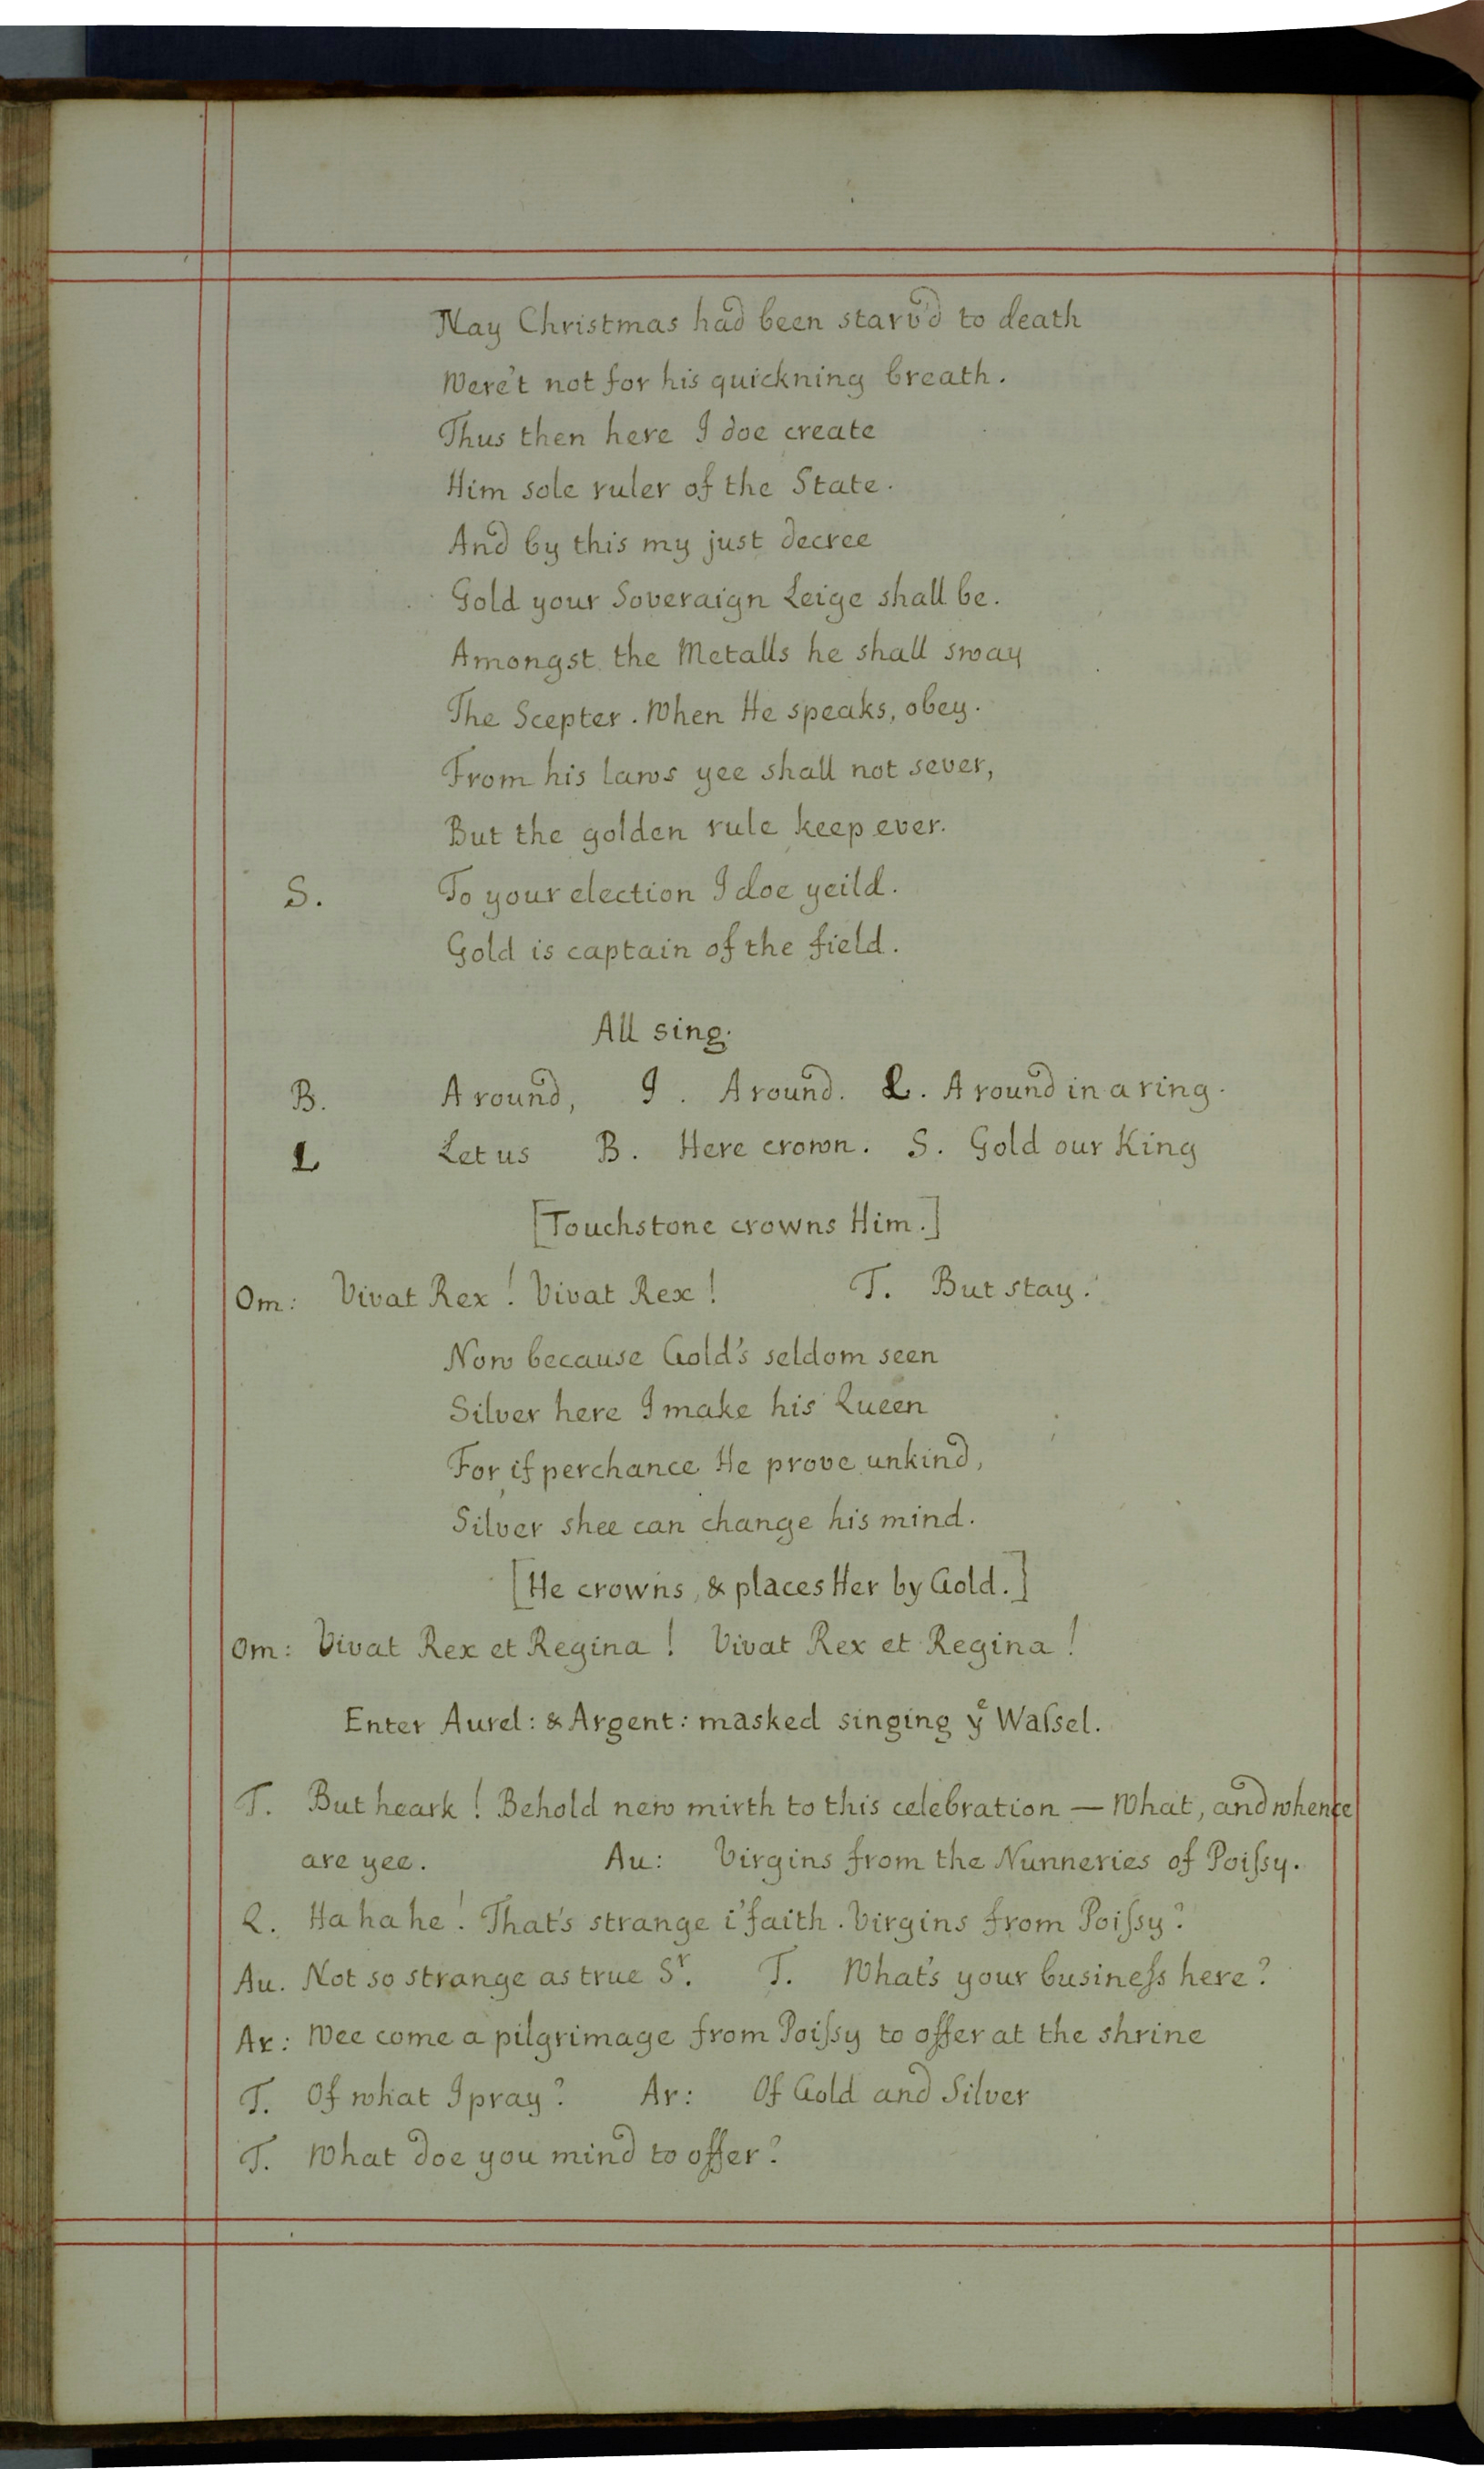 Nay Christmas had been starv'd to death
Were't not for his quickning breath.
Thus then here I doe create
Him sole ruler of the State.
And by this my just decree
Gold your Soveraign Leige shall be.
Amongst the Metalls he shall sway
The Scepter. When He speaks, obey.
From his laws yee shall not sever,
But the golden rule keep ever.
S. To your election I doe yeild.
Gold is captain of the field.
All sing.
B. A round, I. A round. L. A round in a ring.
L Let us B. Here crown. S. Gold our King
[Touchstone crowns Him.]
Om: Vivat Rex! Vivat Rex! T. But stay.
Now because Gold's seldom seen
Silver here I make his Queen
For, if perchance He prove unkind,
Silver shee can change his mind.
[He crowns, & places Her by Gold.]
Om: Vivat Rex et Regina! Vivat Rex et Regina!
Enter Aurel: & Argent: masked singing yᵉ Waſsel.
T. But heark! Behold new mirth to this celebration — What, and whence
are yee. Au: Virgins from the Nunneries of Poiſsy.
Q. Ha ha he! That's strange i'faith. Virgins from Poiſsy?
Au. Not so strange as true Sʳ. T. What's your busineſs here?
Ar: Wee come a pilgrimage from Poiſsy to offer at the shrine
T. Of what I pray? Ar: Of Gold and Silver
T. What doe you mind to offer?